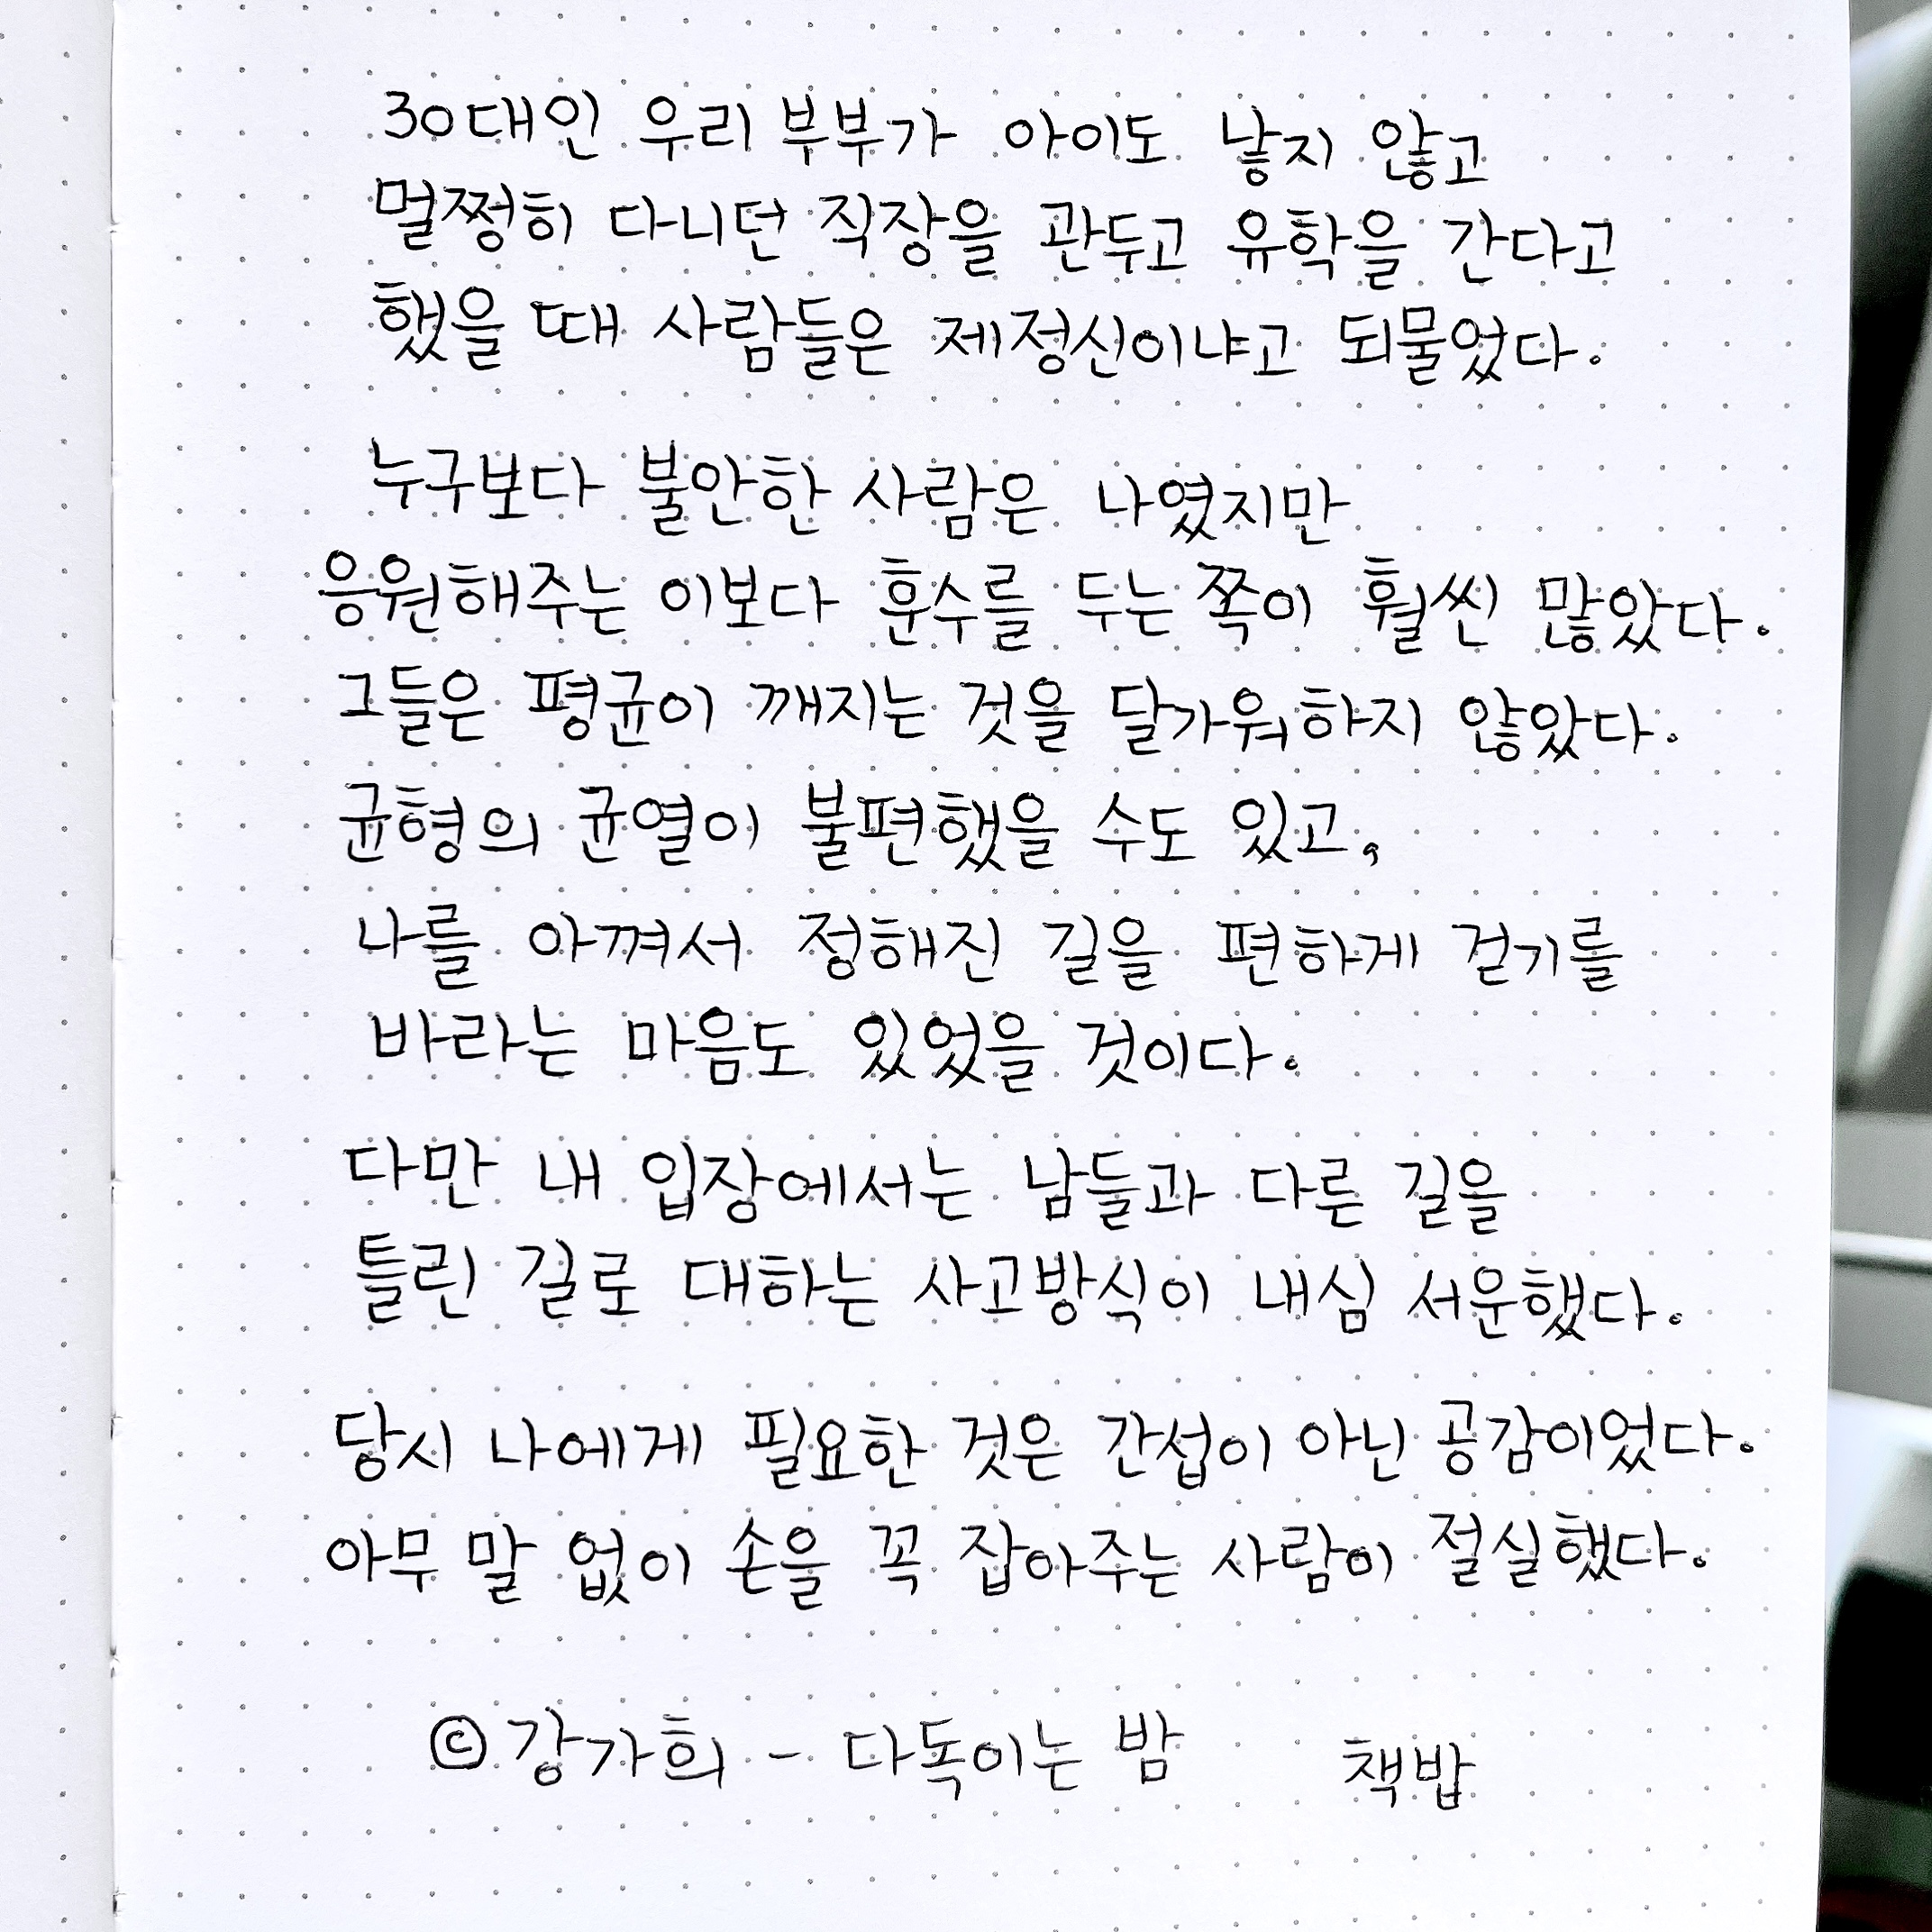 30대인 우리 부부가 아이도 낳지 않고
멀쩡히 다니던 직장을 관두고 유학을 간다고
했을 때 사람들은 제정신이냐고 되물었다.
누구보다 불안한 사람은 나였지만
응원해주는 이보다 훈수를 두는 쪽이 훨씬 많았다.
그들은 평균이 깨지는 것을 달가워하지 않았다.
균형의 균열이 불편했을 수도 있고,
나를 아껴서 정해진 길을 편하게 걷기를
바라는 마음도 있었을 것이다.
다만 내 입장에서는 남들과 다른 길을
틀린 길로 대하는 사고방식이 내심 서운했다.
당시 나에게 필요한 것은 간섭이 아닌 공감이었다.
아무 말 없이 손을 꼭 잡아주는 사람이 절실했다.
© 강가희 - 다독이는 밤 책밥